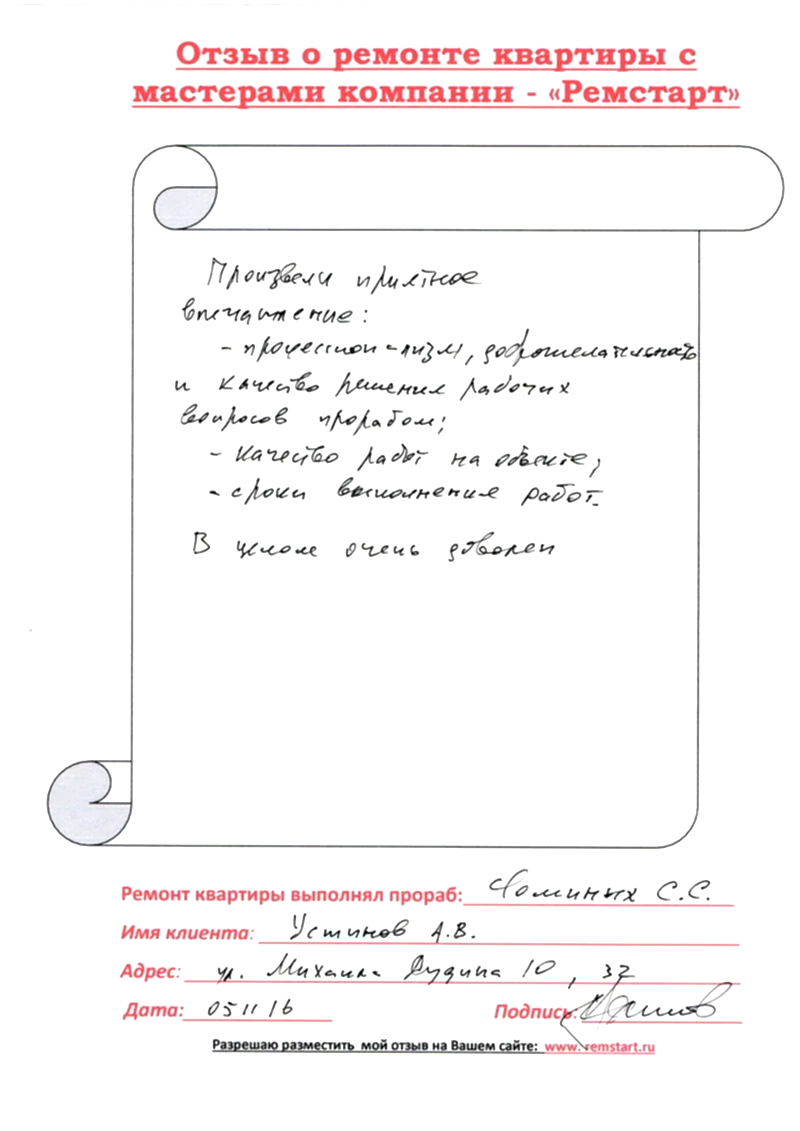 Отзыв о ремонте квартиры с
мастерами компании - «Ремстарт»
Произвели приятное
впечатление:
- професcионализм, доброжелательность
и качество решения рабочих
вопросов прорабом;
- качество работ на объекте;
- сроки выполнения работ.
В целом очень доволен
Ремонт квартиры выполнял прораб: Фоминых С.С.
Имя клиента: Устинов А.В.
Адрес: ул. Михаила Дудина 10, 32
Дата: 05 11 16 Подпись:
Разрешаю разместить мой отзыв на Вашем сайте: www.remstart.ru